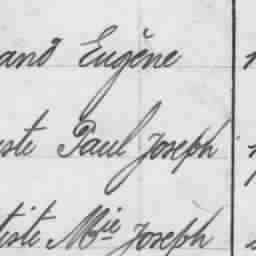 and Eugène
ste Paul Joseph
tiste Mie Joseph